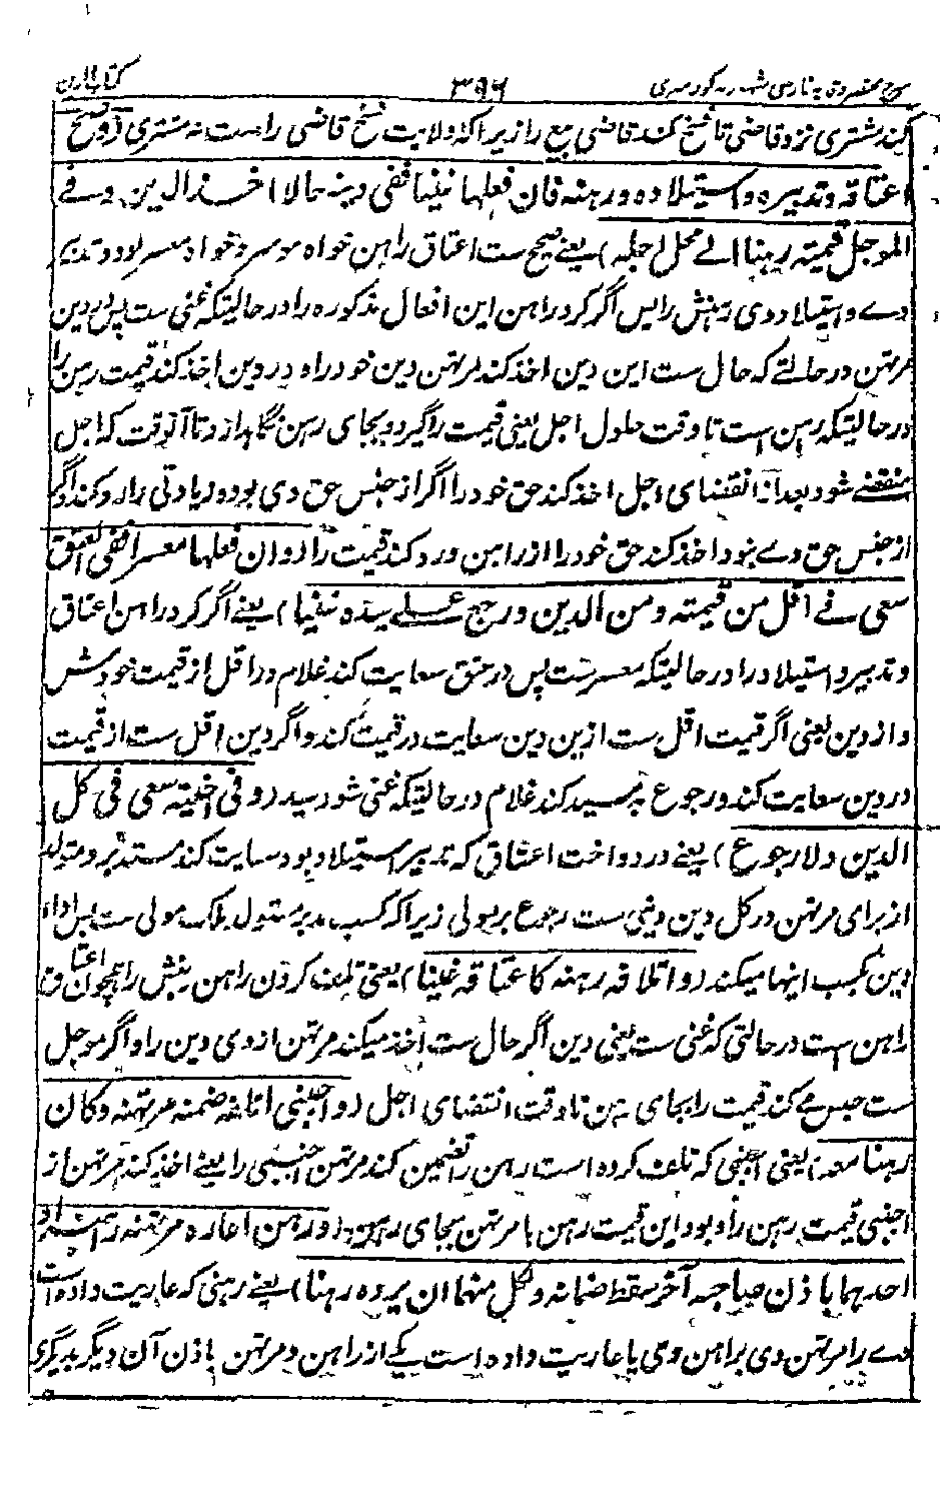 ۳۹۶ کتاب الرهن
کند مشتری نزد قاضی تا فسخ کند قاضی بیع را زیراکه ولایت فسخ قاضی راست نه مشتری (وصح
اعتاقه وتدبیره واستیلاده ورهنه فان فعلها غنیا ففی دینه حالا اخذ الدین وفے
الموجل قیمته رهنا الے محل اجله) یعنے صحیح ست اعتاق راهن خواه موسر و خواه معسر بود و تدبیر
وے و استیلاد وی رهنش را پس اگر کرد راهن این افعال مذکوره را در حالیکه غنی ست پس در دین
مرتهن در حالتے که حال ست این دین اخذ کند مرتهن دین خود را و در دین اخذ کند قیمت رهن را
در حالیکه رهن است تا وقت حلول اجل یعنی قیمت را گیرد و بجای رهن نگاه دارد تا آن وقت که اجل
منقضے شود بعد ازان انقضای اجل اخذ کند حق خود را اگر از جنس حق وی بود و زیادتی را رد کند و اگر
از جنس حق وے نبود اخذ کند حق خود را از راهن و رد کند قیمت را (وان فعلها معسرا ففی العتق
سعی فے اقل من قیمته ومن الدین ورجع علے سیده غنیا) یعنے اگر کرد راهن اعتاق
و تدبیر و استیلاد را در حالیکه معسر ست پس در عتق سعایت کند غلام در اقل از قیمت خودش
و از دین یعنی اگر قیمت اقل ست ازین دین سعایت در قیمت کند و اگر دین اقل ست از قیمت
در دین سعایت کند و رجوع بر سید کند غلام در حالیکه غنی شود سید (و فی اختیه سعی فی کل
الدین ولا رجوع) یعنے در دو اخت اعتاق که تدبیر و استیلاد بود سعایت کند مستدبر و متولد
از برای مرتهن در کل دین و نیست رجوع بر مولی زیراکه کسب مدبر و متولد ملک مولی ست پس اداء
دین بکسب اینها میکند (و اتلافه رهنه کاعتاقه غنیا) یعنی تلف کردن راهن رهنش را همچون اعتاق
راهن ست در حالتی که غنی ست یعنی دین اگر حال ست اخذ میکند مرتهن از وی دین را و اگر موجل
ست حبس مے کند قیمت را بجای رهن تا وقت انقضای اجل (و اجنبی اتلفه ضمنه مرتهنه وکان
رهنا معه) یعنی اجنبی که تلف کرده است رهن را تضمین کند مرتهن اجنبی را یعنے اخذ کند مرتهن از
اجنبی قیمت رهن را و بود این قیمت رهن با مرتهن بجای رهن (ورهن اعاره مرتهنه راهنه او
احدهما باذن صاحبه آخر سقط ضمانه وکل منهما ان یرده رهنا) یعنے رهنی که عاریت داده است
وے را مرتهن وی براهن وی یا عاریت داده است یکے از راهن و مرتهن باذن آن دیگر بدیگری